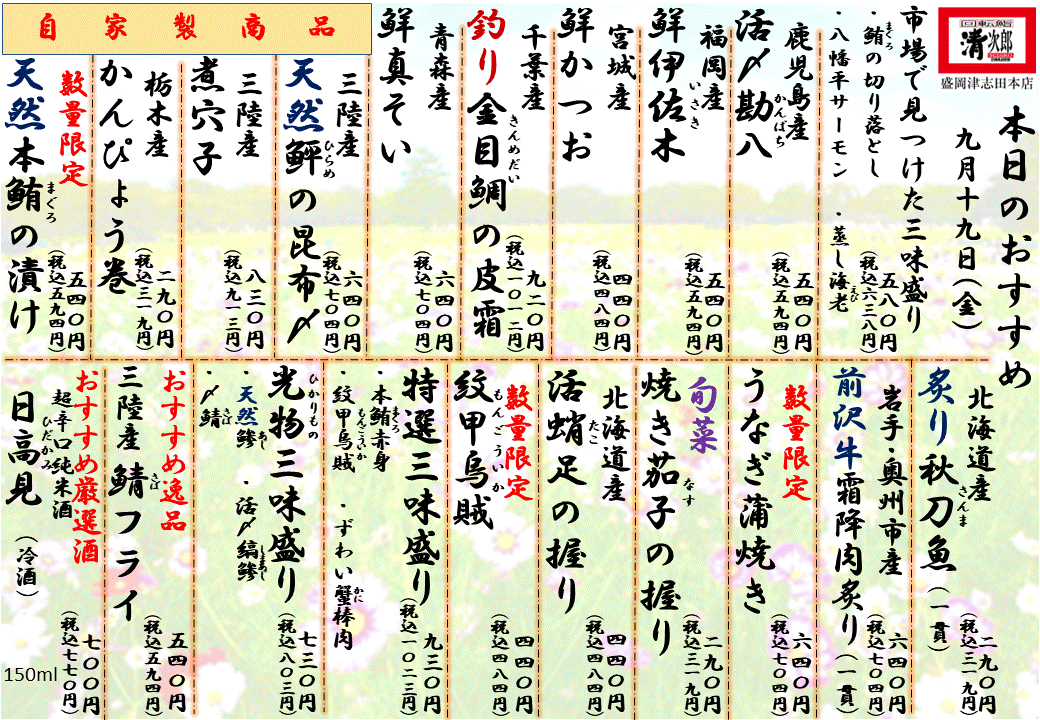 回転鮨
清次郎
盛岡津志田本店
本日のおすすめ
九月十九日(金)
市場で見つけた三味盛り
・鮪の切り落とし
まぐろ
・八幡平サーモン
・蒸し海老
えび
五八〇円
(税込六三八円)
鹿児島産
活〆勘八
かんぱち
五四〇円
(税込五九四円)
福岡産
鮮伊佐木
いさき
五四〇円
(税込五九四円)
宮城産
鮮かつお
四四〇円
(税込四八四円)
千葉産
釣り金目鯛の皮霜
きんめだい
九二〇円
(税込一〇一二円)
青森産
鮮真そい
六四〇円
(税込七〇四円)
自家製商品
三陸産
天然鮃の昆布〆
ひらめ
六四〇円
(税込七〇四円)
三陸産
煮穴子
八三〇円
(税込九一三円)
栃木産
かんぴょう巻
二九〇円
(税込三一九円)
数量限定
天然本鮪の漬け
まぐろ
五四〇円
(税込五九四円)
北海道産
炙り秋刀魚(一貫)
さんま
二九〇円
(税込三一九円)
岩手・奥州市産
前沢牛霜降肉炙り(一貫)
六四〇円
(税込七〇四円)
数量限定
うなぎ蒲焼き
六四〇円
(税込七〇四円)
旬菜
焼き茄子の握り
なす
二九〇円
(税込三一九円)
北海道産
活蛸足の握り
たこ
四四〇円
(税込四八四円)
数量限定
紋甲烏賊
もんごういか
四四〇円
(税込四八四円)
特選三味盛り
・本鮪赤身
まぐろ
・紋甲烏賊
もんごういか
・ずわい蟹棒肉
かに
九三〇円
(税込一〇二三円)
光物三味盛り
ひかりもの
・天然鯵
あじ
・活〆縞鯵
しまあじ
・〆鯖
さば
七三〇円
(税込八〇三円)
おすすめ逸品
三陸産 鯖フライ
さば
五四〇円
(税込五九四円)
おすすめ厳選酒
超辛口純米酒
日高見(冷酒)
ひだかみ
七〇〇円
(税込七七〇円)
150ml